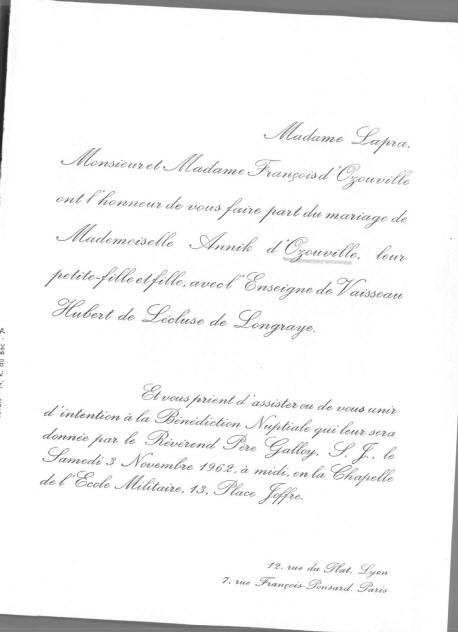 Madame Lapra,
Monsieur et Madame François d'Ozouville
ont l'honneur de vous faire part du mariage de
Mademoiselle Annik d'Ozouville, leur
petite-fille et fille, avec l'Enseigne de Vaisseau
Hubert de Lécluse de Longraye.
Et vous prient d'assister ou de vous unir
d'intention à la Bénédiction Nuptiale qui leur sera
donnée par le Révérend Père Galloy, S. J., le
Samedi 3 Novembre 1962, à midi, en la Chapelle
de l'Ecole Militaire, 13, Place Joffre.
12, rue du Plat, Lyon
7, rue François-Ponsard, Paris
R. du Bac